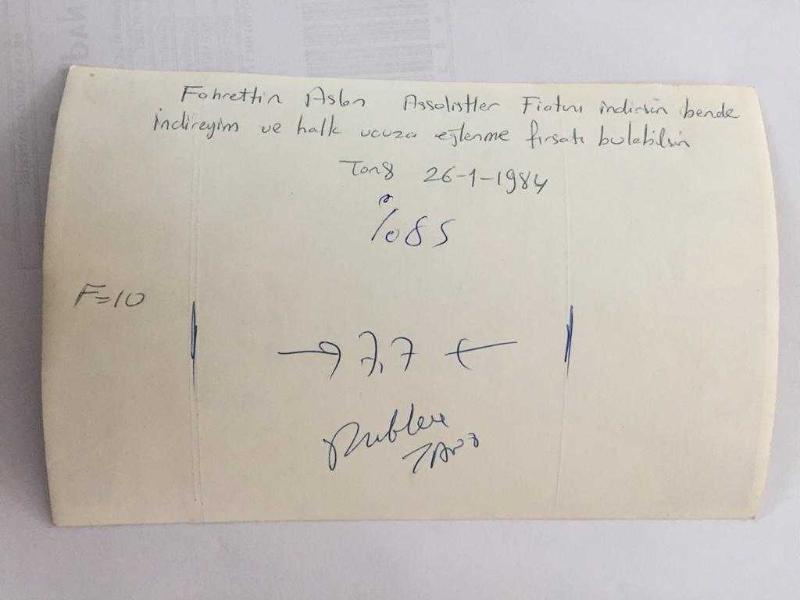 Fahrettin Aslan Assolistler Fiatını indirsin bende
İndireyim ve halk ucuza eğlenme fırsatı bulabilsin
26-1-1984
%85
F=10
→ 7,7 ←